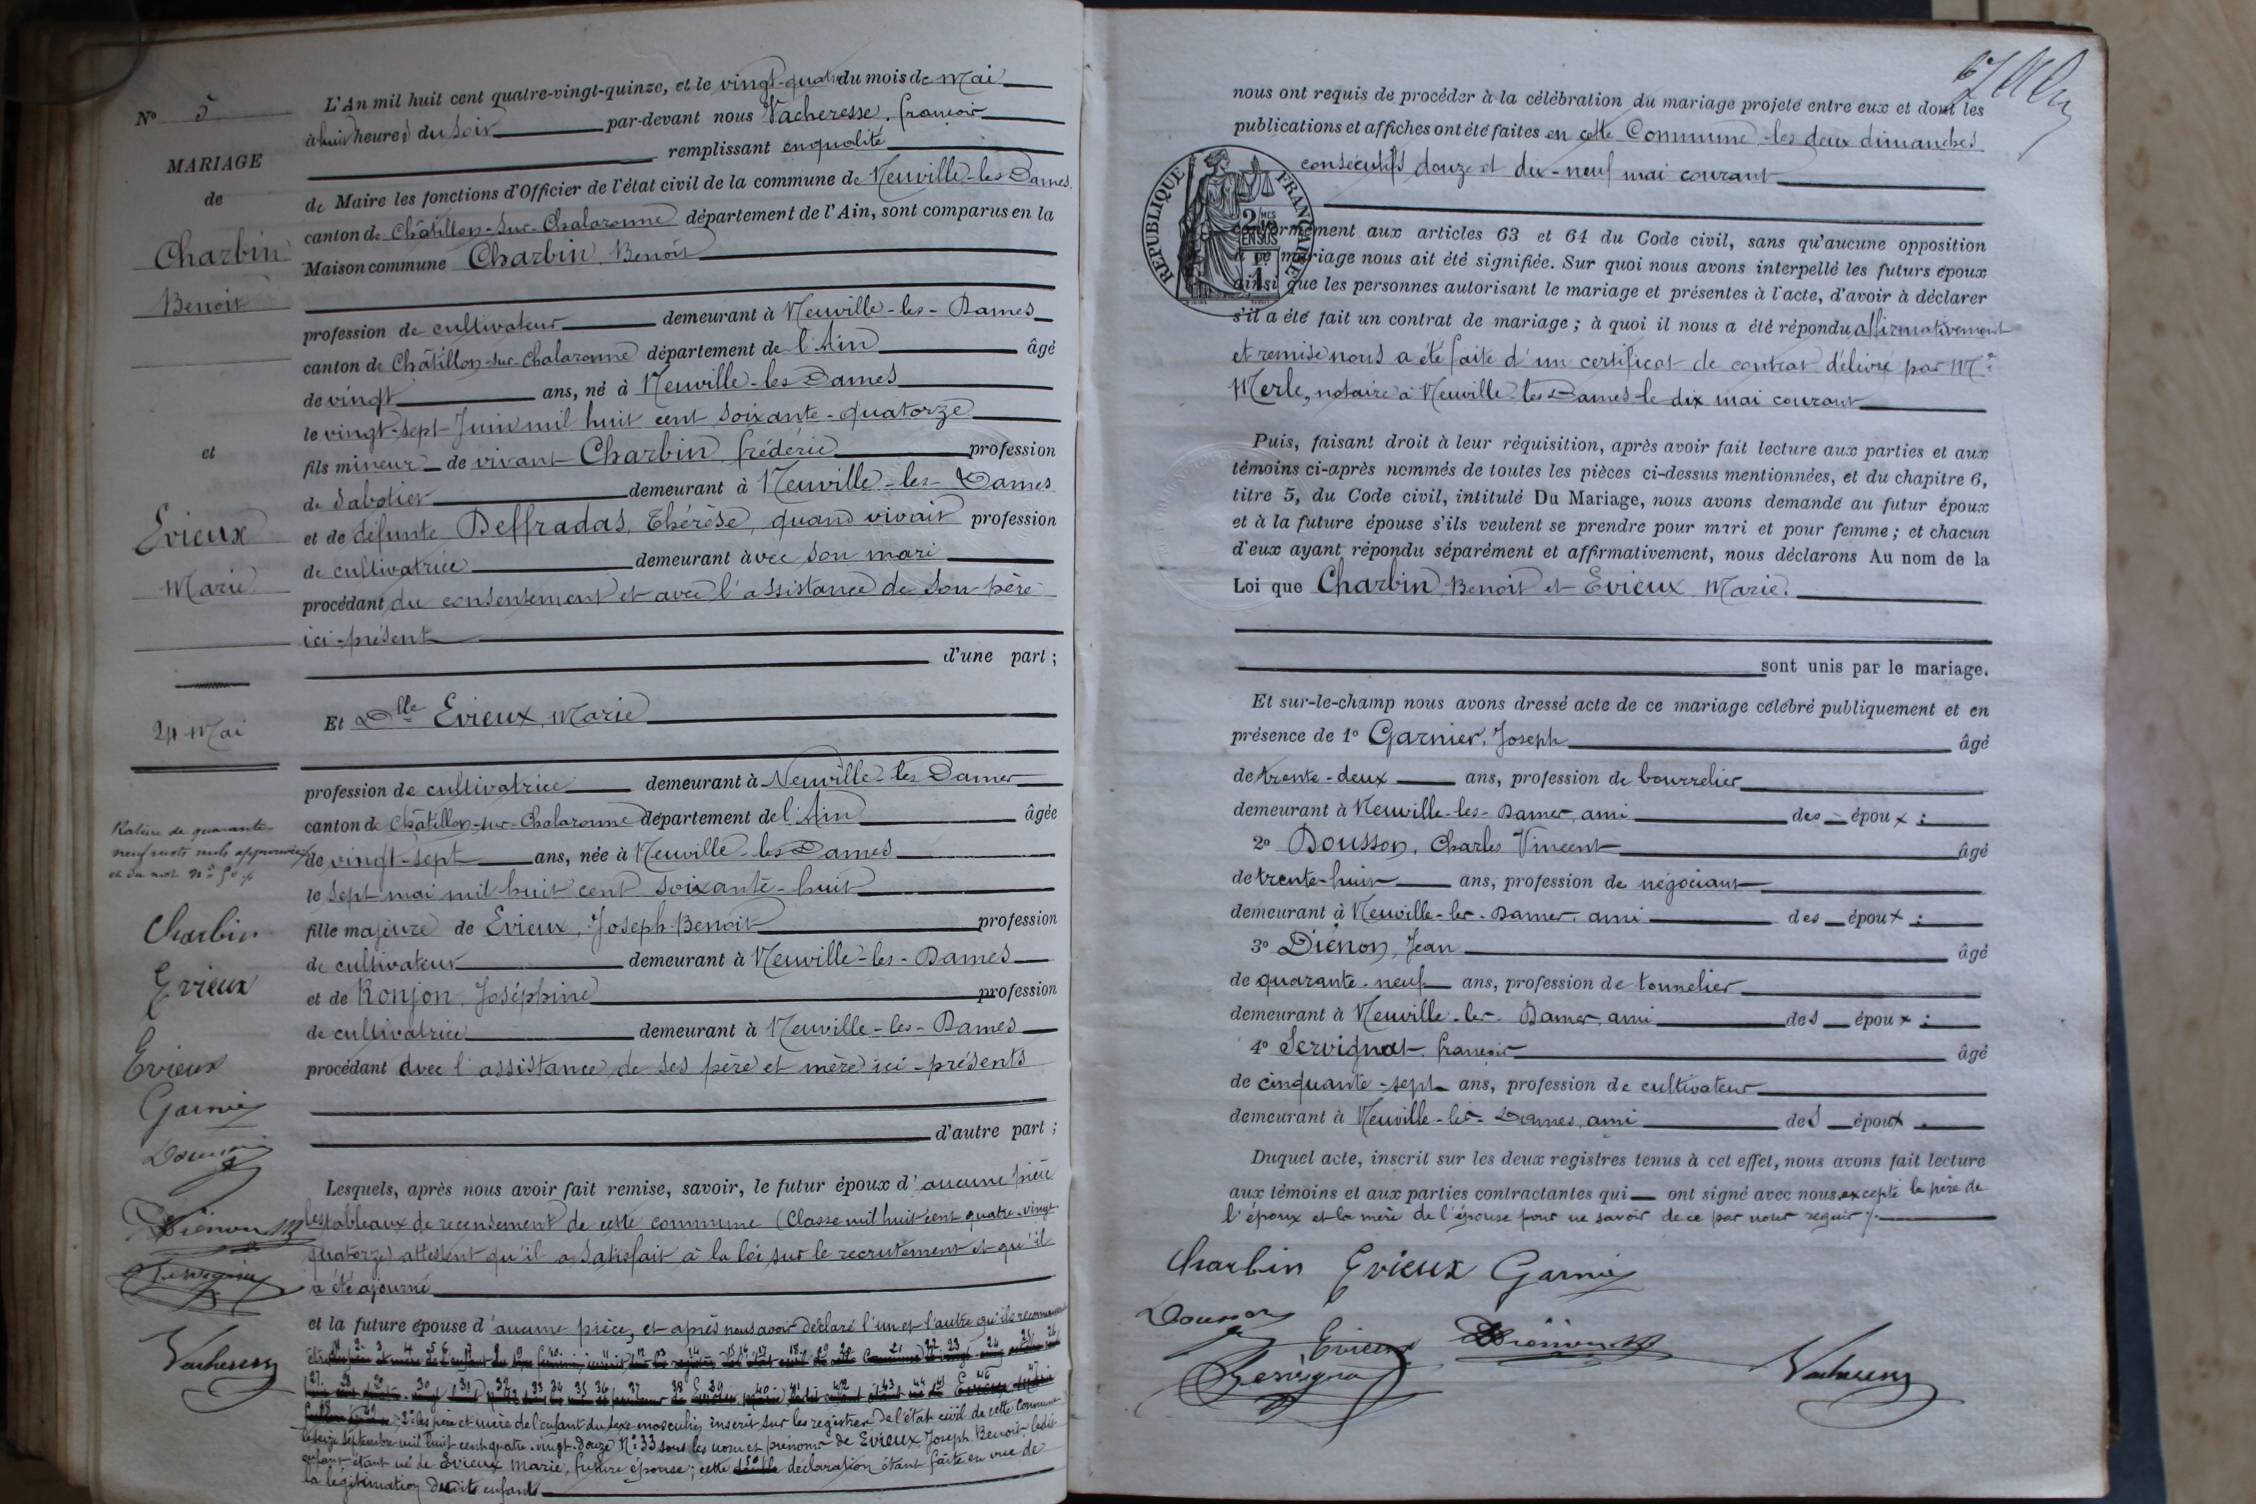 N° 5
MARIAGE
de
Charbin
Benoit
et
Evieux
Marie
24 Mai
Rature de quarante-
neuf mots nuls approuvée
Charbin
Evieux
Evieux
Garnier
Dousson
Diénon
Servignat
Vacheresse
L'An mil huit cent quatre-vingt-quinze, et le vingt-quatre du mois de Mai
à huit heures du soir par-devant nous Vacheresse, françois
remplissant en qualité
de Maire les fonctions d'Officier de l'état civil de la commune de Neuville-les-Dames,
canton de Châtillon-sur-Chalaronne département de l'Ain, sont comparus en la
Maison commune Charbin Benoit
profession de cultivateur demeurant à Neuville-les-Dames
canton de Châtillon-sur-Chalaronne département de l'Ain âgé
de vingt ans, né à Neuville-les-Dames
le vingt-sept Juin mil huit cent soixante-quatorze
fils mineur de vivant Charbin frédéric profession
de sabotier demeurant à Neuville-les-Dames
et de défunte Deffradas, Thérèse, quand vivait profession
de cultivatrice demeurant avec son mari
procédant du consentement et avec l'assistance de son père
ici-présent
d'une part ;
Et Dlle Evieux, Marie
profession de cultivatrice demeurant à Neuville-les-Dames
canton de Châtillon-sur-Chalaronne département de l'Ain âgée
de vingt-sept ans, née à Neuville-les-Dames
le sept mai mil huit cent soixante-huit
fille majeure de Evieux, Joseph-Benoit profession
de cultivateur demeurant à Neuville-les-Dames
et de Ronjon, Joséphine profession
de cultivatrice demeurant à Neuville-les-Dames
procédant avec l'assistance de ses père et mère ici-présents
d'autre part ;
Lesquels, après nous avoir fait remise, savoir, le futur époux d'aucune pièce
les tableaux de recensement de cette commune (Classe mil huit cent quatre-vingt-
quatorze) attestent qu'il a satisfait à la loi sur le recrutement et qu'il
a été ajourné
et la future épouse d'aucune pièce, et après nous avoir déclaré l'un et l'autre qu'ils reconnaissent
être
2° les père et mère de l'enfant du sexe masculin, inscrit sur les registres de l'état civil de cette commune
le seize septembre mil huit cent quatre-vingt-douze N° 33 sous les nom et prénoms de Evieux Joseph Benoit, ledit
enfant étant né de Evieux Marie, future épouse; cette déclaration étant faite en vue de
la légitimation dudit enfant
nous ont requis de procéder à la célébration du mariage projeté entre eux et dont les
publications et affiches ont été faites en cette Commune les deux dimanches
consécutifs douze et dix-neuf mai courant
REPUBLIQUE FRANÇAISE
2/10MES
EN SUS
1F
conformément aux articles 63 et 64 du Code civil, sans qu'aucune opposition
à ce mariage nous ait été signifiée. Sur quoi nous avons interpellé les futurs époux
ainsi que les personnes autorisant le mariage et présentes à l'acte, d'avoir à déclarer
s'il a été fait un contrat de mariage ; à quoi il nous a été répondu affirmativement
et remise nous a été faite d'un certificat de contrat délivré par Me
Merle, notaire à Neuville-les-Dames le dix mai courant
Puis, faisant droit à leur réquisition, après avoir fait lecture aux parties et aux
témoins ci-après nommés de toutes les pièces ci-dessus mentionnées, et du chapitre 6,
titre 5, du Code civil, intitulé Du Mariage, nous avons demandé au futur époux
et à la future épouse s'ils veulent se prendre pour mari et pour femme ; et chacun
d'eux ayant répondu séparément et affirmativement, nous déclarons Au nom de la
Loi que Charbin Benoit et Evieux Marie.
sont unis par le mariage.
Et sur-le-champ nous avons dressé acte de ce mariage célébré publiquement et en
présence de 1° Garnier, Joseph âgé
de trente-deux ans, profession de bourrelier
demeurant à Neuville-les-Dames, ami des époux ;
2° Dousson, Charles Vincent âgé
de trente-huit ans, profession de négociant
demeurant à Neuville-les-Dames, ami des époux ;
3° Diénon, Jean âgé
de quarante-neuf ans, profession de tonnelier
demeurant à Neuville-les-Dames, ami des époux ;
4° Servignat, françois âgé
de cinquante-sept ans, profession de cultivateur
demeurant à Neuville-les-Dames, ami des époux .
Duquel acte, inscrit sur les deux registres tenus à cet effet, nous avons fait lecture
aux témoins et aux parties contractantes qui ont signé avec nous excepté le père de
l'époux et la mère de l'épouse pour ne savoir de ce par nous requis
Charbin Evieux Garnier
Dousson Evieux Diénon
Servignat Vacheresse